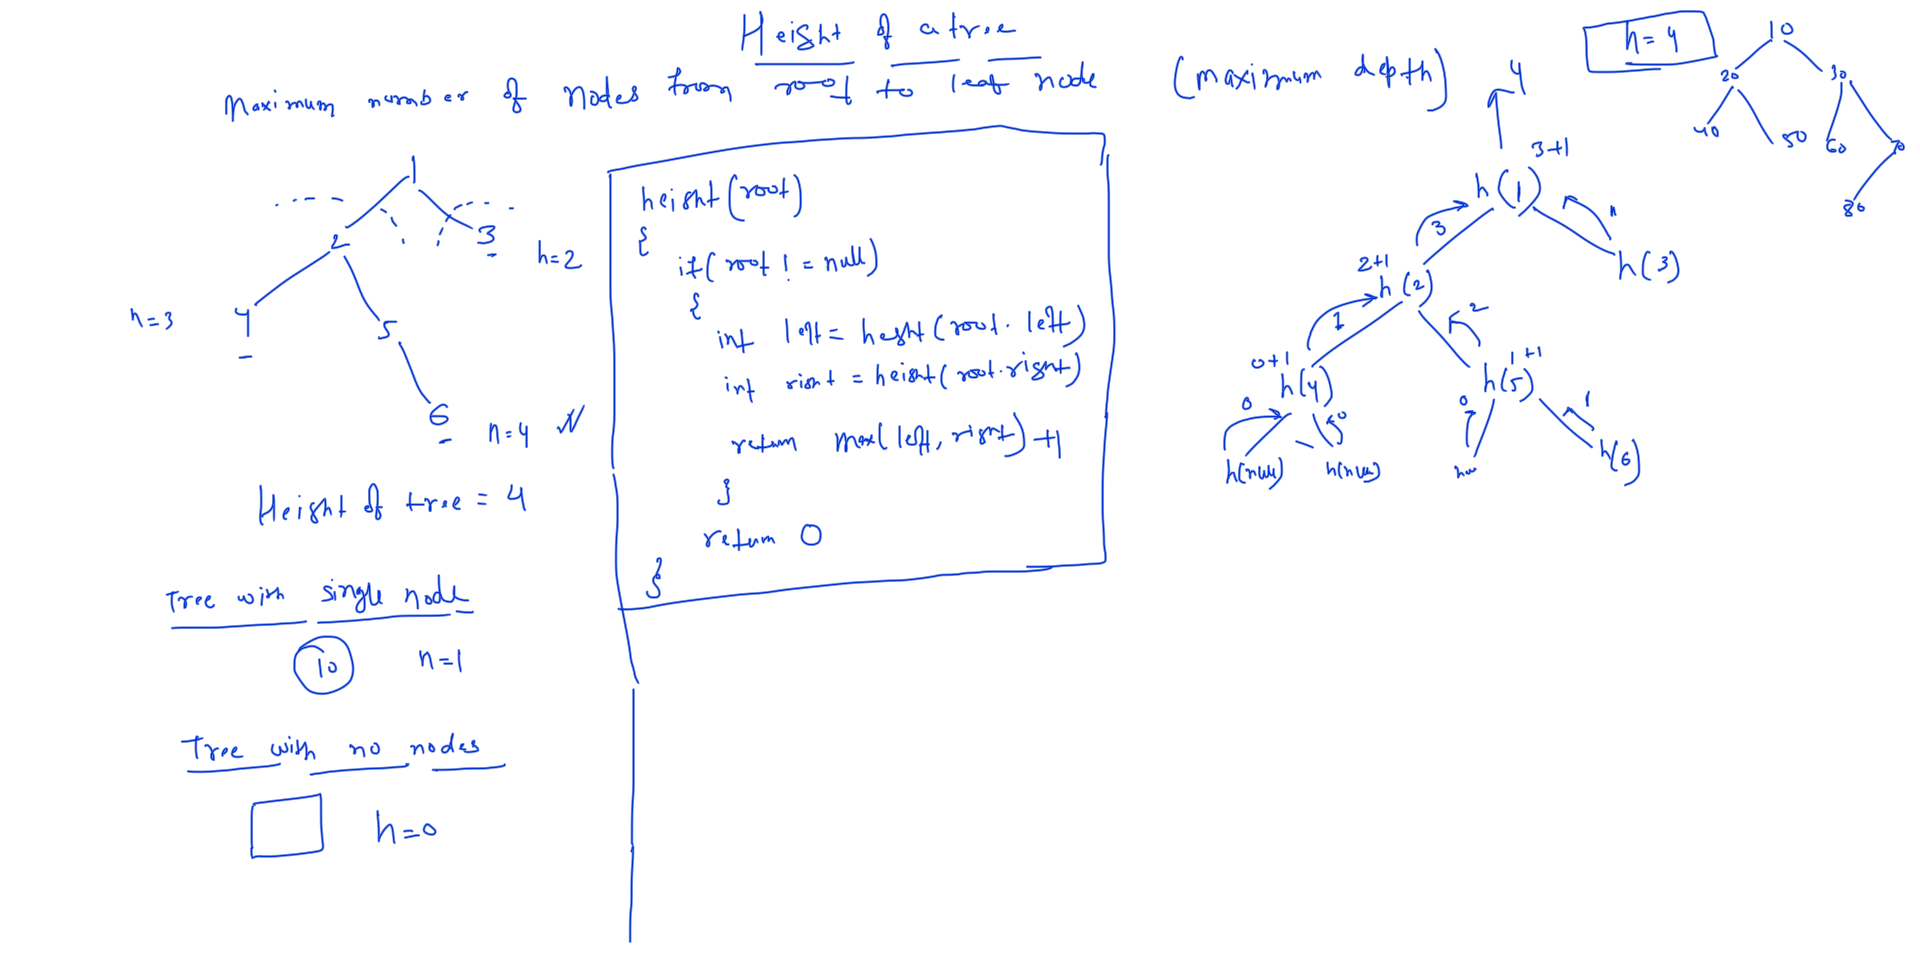 Height of a tree
Maximum number of nodes from root to leaf node (maximum depth)
1
2
3
h=2
h=3
4
5
6
h=4
Height of tree = 4
Tree with single node
10
h=1
Tree with no nodes
h=0
height(root)
{
if(root != null)
{
int left = height(root.left)
int right = height(root.right)
return max(left, right)+1
}
return 0
}
4
3+1
h(1)
3
h(3)
2+1
h(2)
1
2
0+1
h(4)
1+1
h(5)
0
0
0
1
h(null)
h(null)
h(6)
h=4
10
20
30
40
50
60
70
80